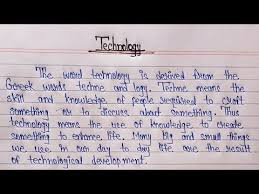 Technology
The word technology is desired from the
Greek words techne and logy. Techne means the
skill and knowledge of people required to craft
something or to discuss about something. Thus
technology means the use of knowledge to create
something to enhance life. Many big and small things
we use in our day to day life are the result
of technological development.